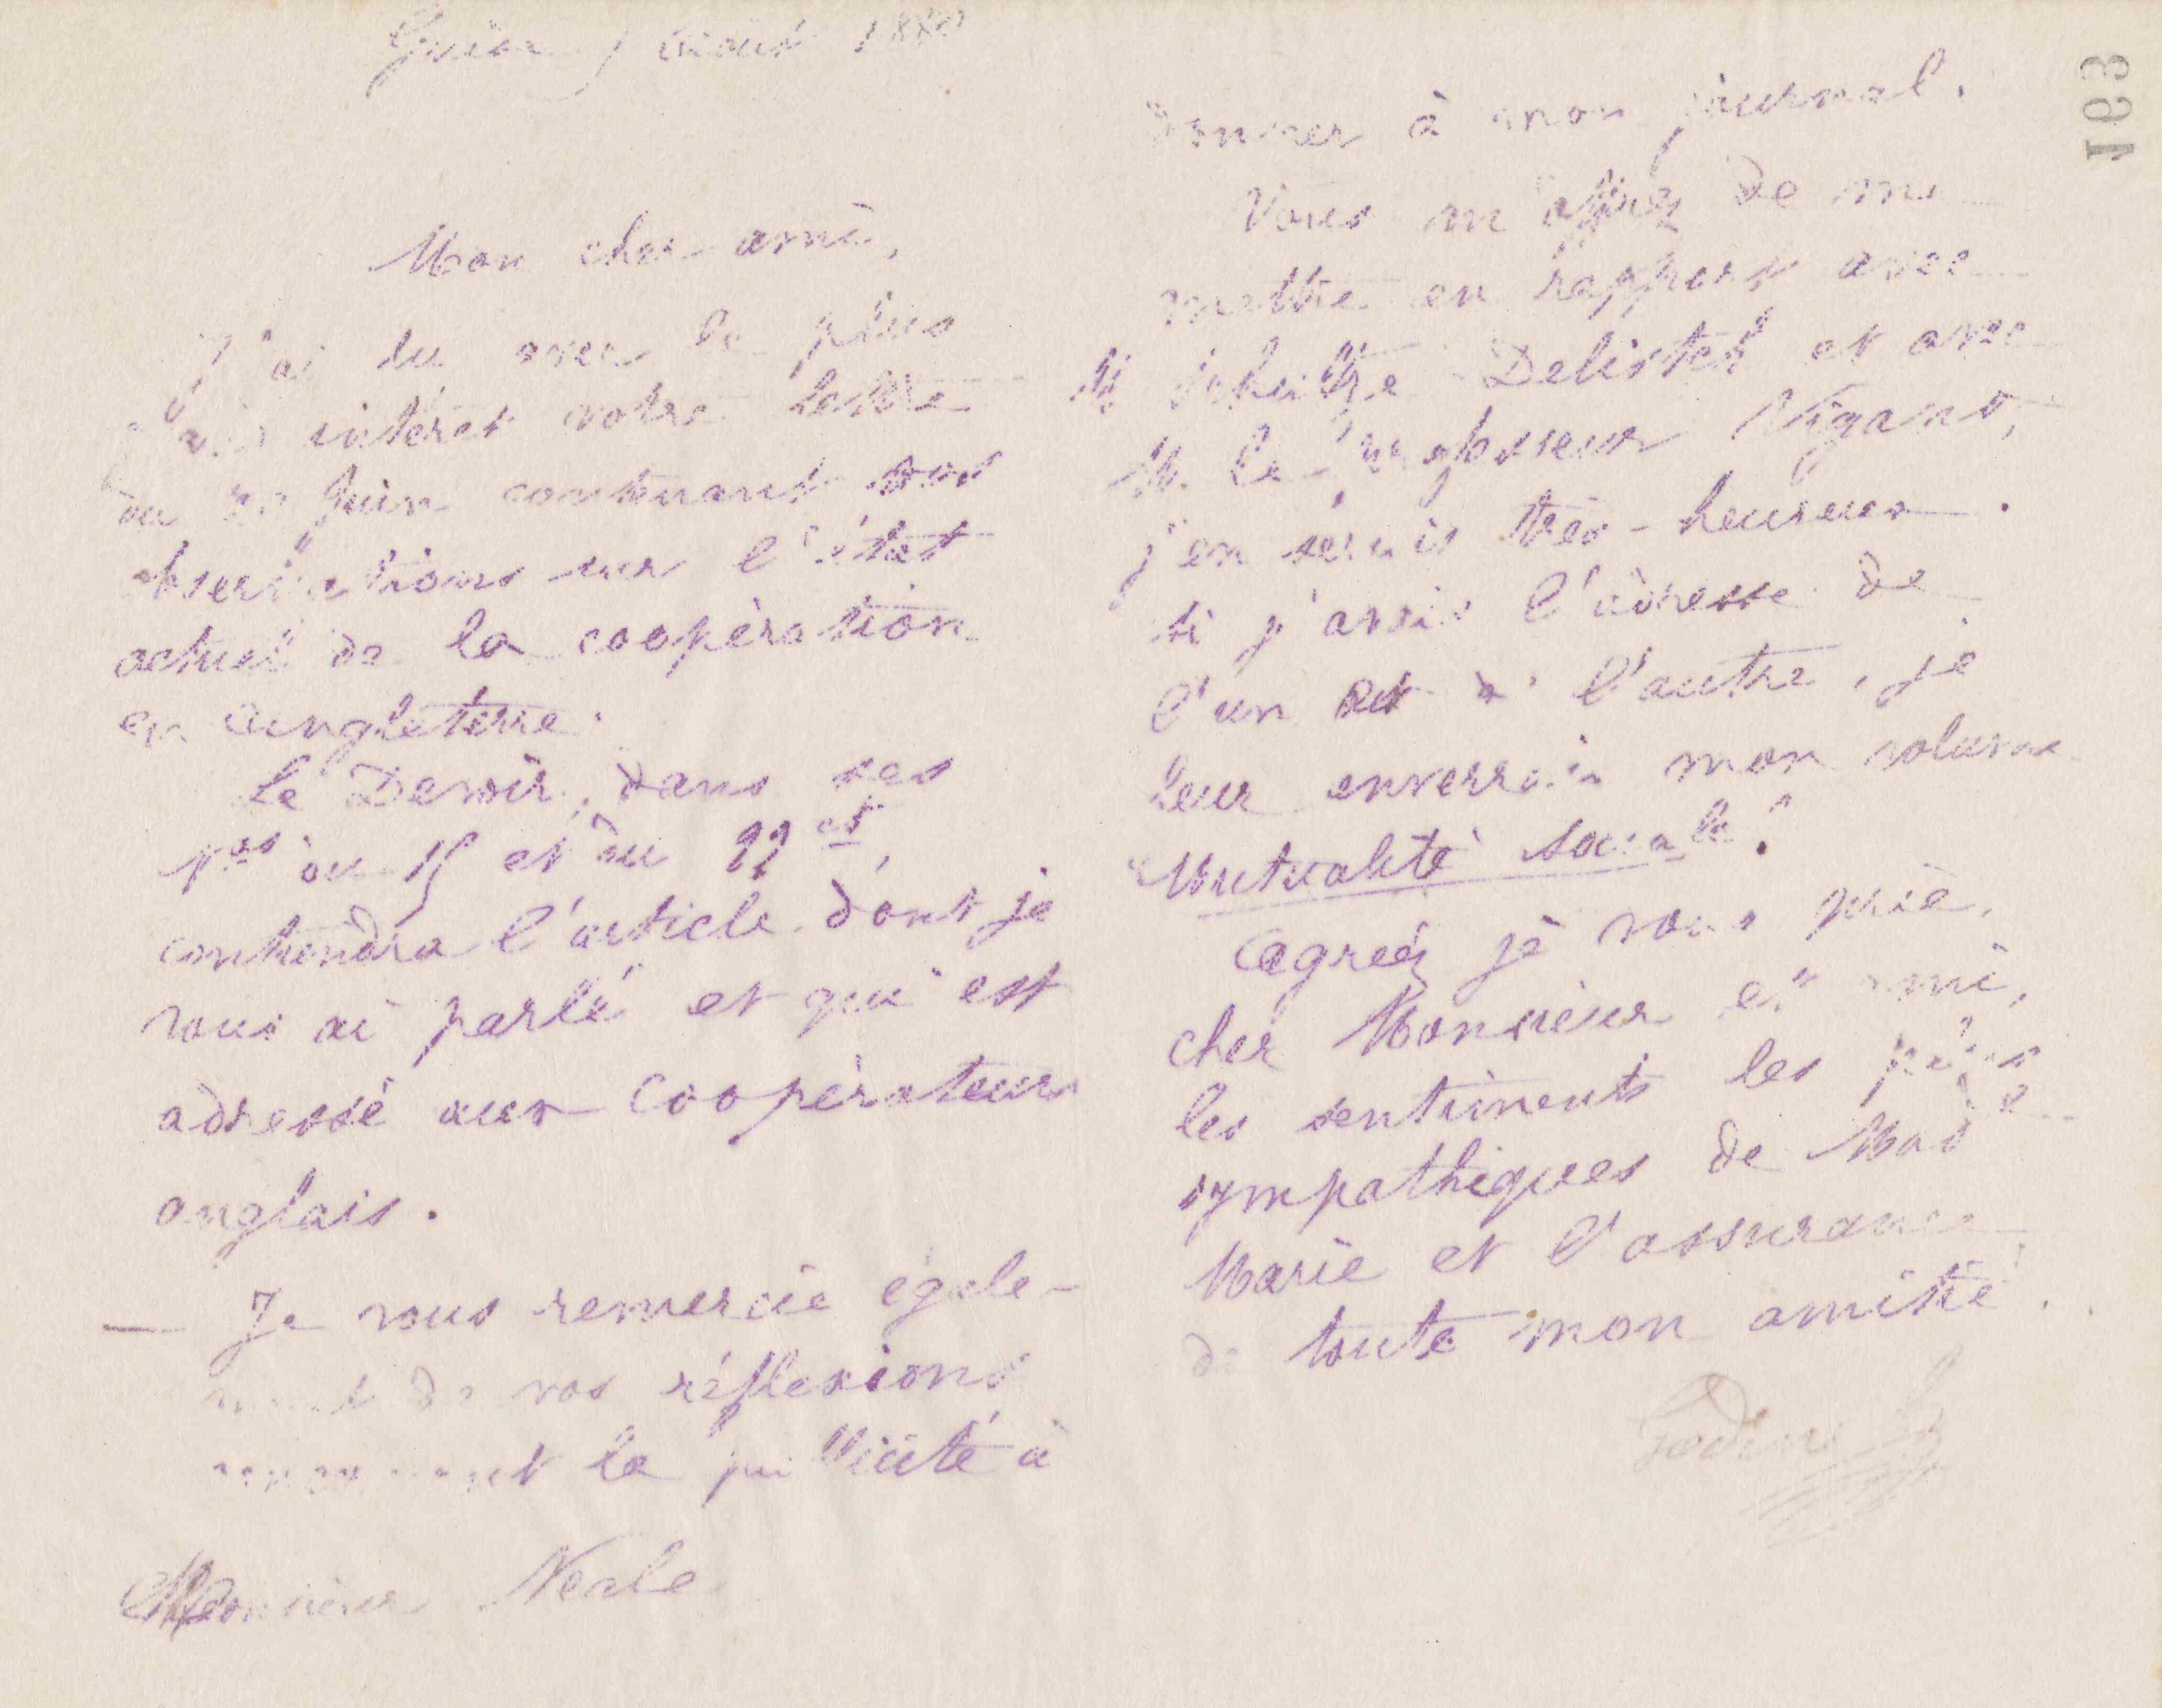 Guise août 1880
Mon cher ami,
J'ai lu avec le plus
intérêt votre lettre
du juin contenant vos
observations sur l'état
actuel de la coopération
en Angleterre.
Le Devoir, dans ses
Nos du 15 et du 22 ct
contiendra l'article dont je
vous ai parlé et qui est
adressé aux Coopérateurs
anglais.
— Je vous remercie égale-
ment de vos réflexions
concernant la publicité à
Monsieur Neale
donner à mon journal.
Vous m'offrez de me
mettre en rapport avec
M. Schultze Delistch et avec
M. le professeur Vigano,
j'en serais très-heureux.
Si j'avais l'adresse de
l'un et de l'autre, je
leur enverrais mon volume
"Mutualité sociale".
Agréez je vous prie,
cher Monsieur et ami,
les sentiments les plus
sympathiques de Made
Marie et l'assurance
de toute mon amitié.
Godin
193